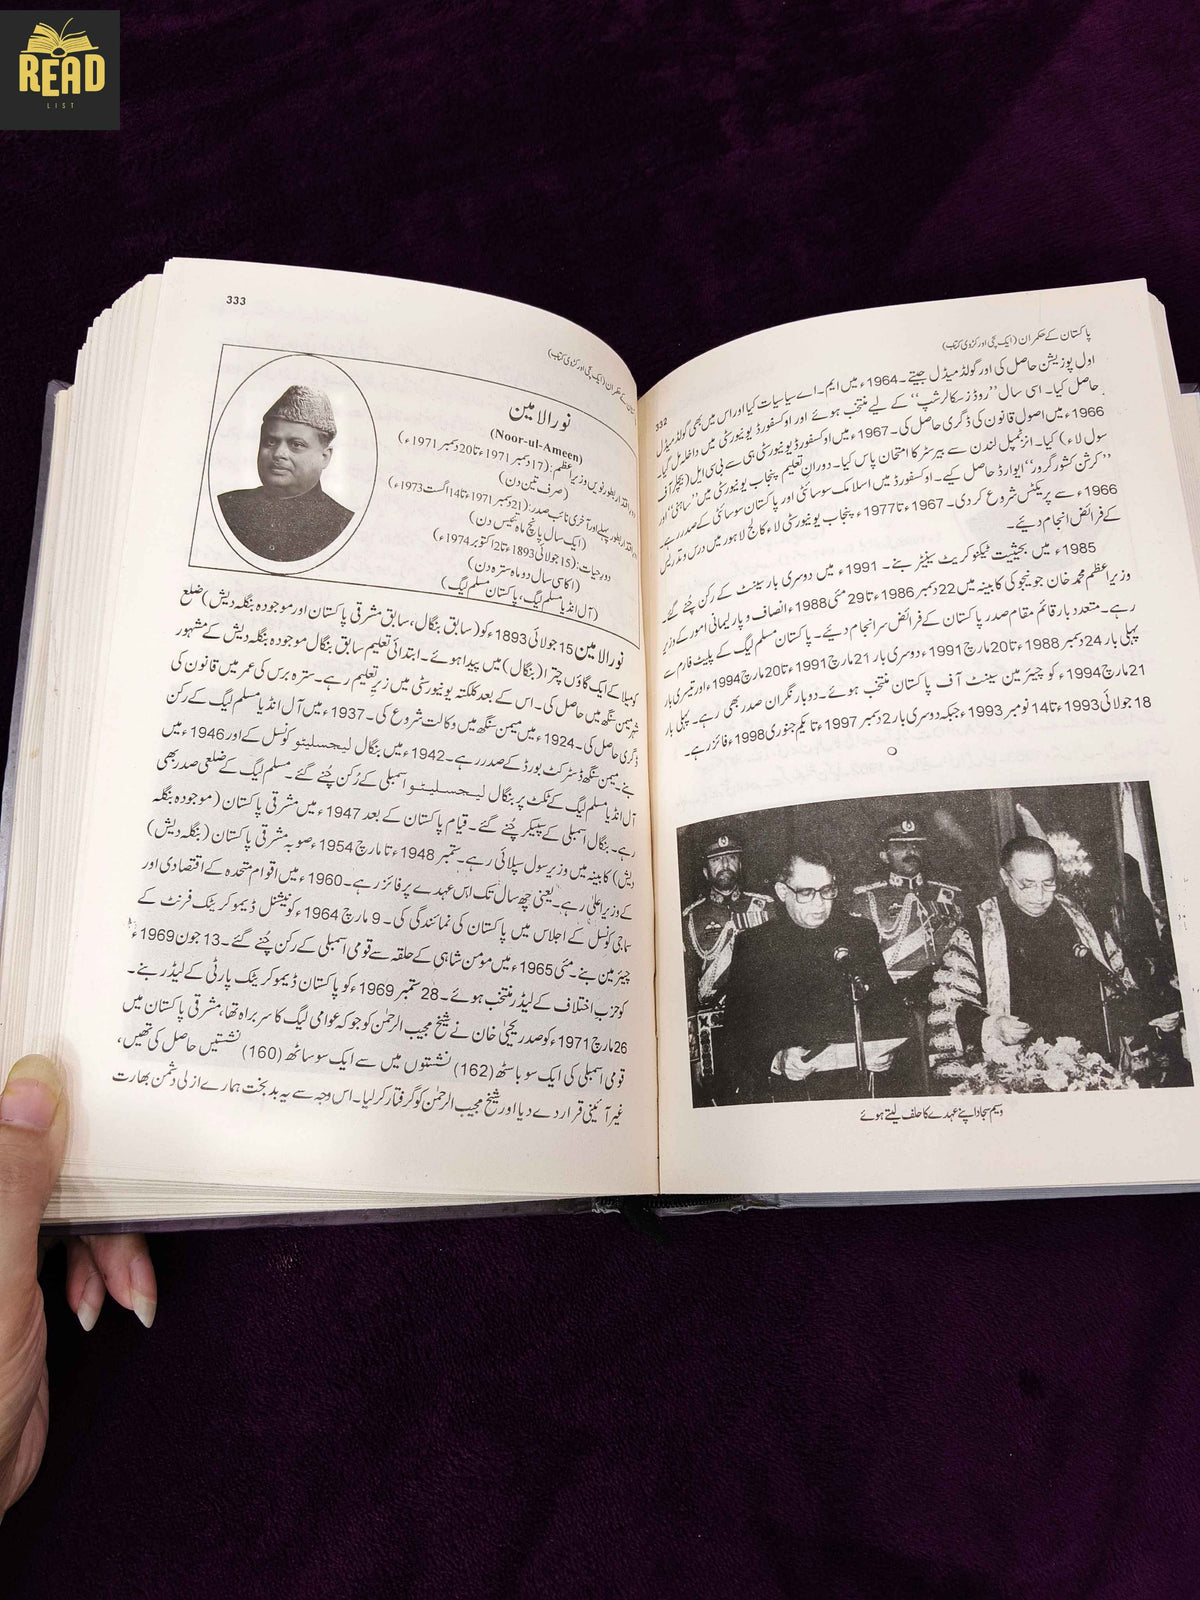 READ
LIST
پاکستان کے حکمران (ایک سچی اور کڑوی کتاب)
332
اول پوزیشن حاصل کی اور گولڈ میڈل جیتے۔ 1964ء میں ایم۔اے سیاسیات کیا اور اس میں بھی گولڈ میڈل
حاصل کیا۔ اسی سال ”روڈز سکالرشپ“ کے لیے منتخب ہوئے اور اوکسفورڈ یونیورسٹی میں داخلہ مل گیا۔
1966ء میں اصولِ قانون کی ڈگری حاصل کی۔ 1967ء میں اوکسفورڈ یونیورسٹی ہی سے بی سی ایل (بیچلر آف
سول لاء) کیا۔ انرٹمپل لندن سے بیرسٹر کا امتحان پاس کیا۔ دورانِ تعلیم پنجاب یونیورسٹی میں
ایوارڈ حاصل کیے۔ اوکسفورڈ میں اسلامک سوسائٹی اور پاکستان سوسائٹی کے صدر رہے۔
1966ء سے پریکٹس شروع کر دی۔ 1967ء تا 1977ء پنجاب یونیورسٹی لاء کالج لاہور میں درس و تدریس
کے فرائض انجام دیئے۔
1985ء میں بحیثیت ٹیکنوکریٹ سینیٹر بنے۔ 1991ء میں دوسری بار سینٹ کے رکن چُنے گئے۔
وزیراعظم محمد خان جونیجو کی کابینہ میں 22 دسمبر 1986ء تا 29 مئی 1988ء انصاف و پارلیمانی امور کے وزیر
رہے۔ متعدد بار قائم مقام صدر پاکستان کے فرائض سرانجام دیئے۔ پاکستان مسلم لیگ کے پلیٹ فارم سے
پہلی بار 24 دسمبر 1988ء تا 20 مارچ 1991ء دوسری بار 21 مارچ 1991ء تا 20 مارچ 1994ء اور تیسری بار
21 مارچ 1994ء کو چیئرمین سینٹ آف پاکستان منتخب ہوئے۔ دوبار نگران صدر بھی رہے۔ پہلی بار
18 جولائی 1993ء تا 14 نومبر 1993ء جبکہ دوسری بار 2 دسمبر 1997ء تا یکم جنوری 1998ء فائز رہے۔
وسیم سجاد اپنے عہدے کا حلف لیتے ہوئے
333
کے حکمران (ایک سچی اور کڑوی کتاب)
نورالامین
(Noor-ul-Ameen)
اقتدار بطور نویں وزیراعظم: (7 دسمبر 1971ء تا 20 دسمبر 1971ء)
(صرف تین دن)
اقتدار بطور پہلے اور آخری نائب صدر: (21 دسمبر 1971ء تا 14 اگست 1973ء)
(ایک سال پانچ ماہ تیئیس دن)
دورِ حیات: (15 جولائی 1893ء تا 2 اکتوبر 1974ء)
(اکاسی سال دو ماہ سترہ دن)
(آل انڈیا مسلم لیگ، پاکستان مسلم لیگ)
نورالامین 15 جولائی 1893ء کو (سابق بنگال، سابق مشرقی پاکستان اور موجودہ بنگلہ دیش) ضلع
کومیلا کے ایک گاؤں چترا (بنگال) میں پیدا ہوئے۔ ابتدائی تعلیم سابق بنگال موجودہ بنگلہ دیش کے مشہور
شہر میمن سنگھ میں حاصل کی۔ اس کے بعد کلکتہ یونیورسٹی میں زیرِ تعلیم رہے۔ سترہ برس کی عمر میں قانون کی
ڈگری حاصل کی۔ 1924ء میں میمن سنگھ میں وکالت شروع کی۔ 1937ء میں آل انڈیا مسلم لیگ کے رکن
بنے۔ میمن سنگھ ڈسٹرکٹ بورڈ کے صدر رہے۔ 1942ء میں بنگال لیجسلیٹو کونسل کے اور 1946ء میں
آل انڈیا مسلم لیگ کے ٹکٹ پر بنگال لیجسلیٹو اسمبلی کے رُکن چُنے گئے۔ مسلم لیگ کے ضلعی صدر بھی
رہے۔ بنگال اسمبلی کے سپیکر چُنے گئے۔ قیامِ پاکستان کے بعد 1947ء میں مشرقی پاکستان (موجودہ بنگلہ
دیش) کابینہ میں وزیر سول سپلائی رہے۔ ستمبر 1948ء تا مارچ 1954ء صوبہ مشرقی پاکستان (بنگلہ دیش)
کے وزیراعلیٰ رہے۔ یعنی چھ سال تک اس عہدے پر فائز رہے۔ 1960ء میں اقوامِ متحدہ کے اقتصادی اور
سماجی کونسل کے اجلاس میں پاکستان کی نمائندگی کی۔ 9 مارچ 1964ء کو نیشنل ڈیموکریٹک فرنٹ کے
چیئرمین بنے۔ مئی 1965ء میں مومن شاہی کے حلقہ سے قومی اسمبلی کے رکن چُنے گئے۔ 13 جون 1969ء
کو حزبِ اختلاف کے لیڈر منتخب ہوئے۔ 28 ستمبر 1969ء کو پاکستان ڈیموکریٹک پارٹی کے لیڈر بنے۔
26 مارچ 1971ء کو صدر یحییٰ خان نے شیخ مجیب الرحمٰن کو جو کہ عوامی لیگ کا سربراہ تھا، مشرقی پاکستان میں
قومی اسمبلی کی ایک سو باسٹھ (162) نشستوں میں سے ایک سو ساٹھ (160) نشستیں حاصل کی تھیں،
غیر آئینی قرار دے دیا اور شیخ مجیب الرحمٰن کو گرفتار کر لیا۔ اس وجہ سے یہ بدبخت ہمارے ازلی دشمن بھارت